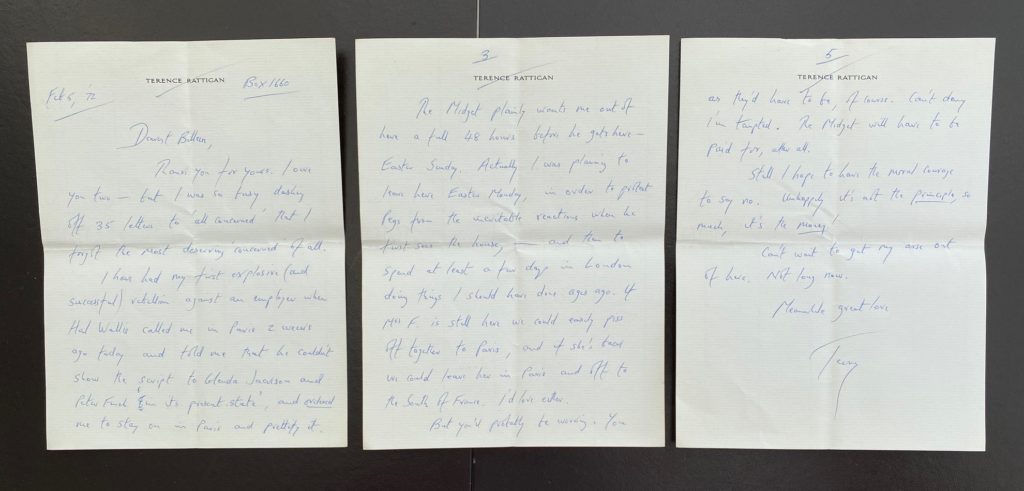 TERENCE RATTIGAN
Feb 5, '72
Box 1660
Dearest
Thank you for yours. I owe
you two — but I was so busy dashing
off 35 letters to 'all concerned' that I
forgot the most deserving 'concerned' of all.
I have had my first explosive (and
successful) rebellion against an employer when
Hal Wallis called me in Paris 2 weeks
ago today and told me that he couldn't
show the script to Glenda Jackson and
Peter Finch 'in its present state', and ordered
me to stay on in Paris and prettify it.
3
TERENCE RATTIGAN
The Midget plainly wants me out of
here a full 48 hours before he gets here —
Easter Sunday. Actually I was planning to
leave here Easter Monday, in order to protect
Pegs from the inevitable reactions when he
first sees the house, — and then to
spend at least a few days in London
doing things I should have done ages ago. If
Mrs F. is still here we could easily piss
off together to Paris, and if she's
we could leave her in Paris and off to
the South of France. I'd love either.
But you'd probably be working. You
5
TERENCE RATTIGAN
as they'd have to be, of course. Can't deny
I'm tempted. The Midget will have to be
paid for, after all.
Still I hope to have the moral courage
to say no. Unhappily it's not the principle so
much, it's the money!
Can't wait to get my arse out
of here. Not long now.
Meanwhile great love
Terry